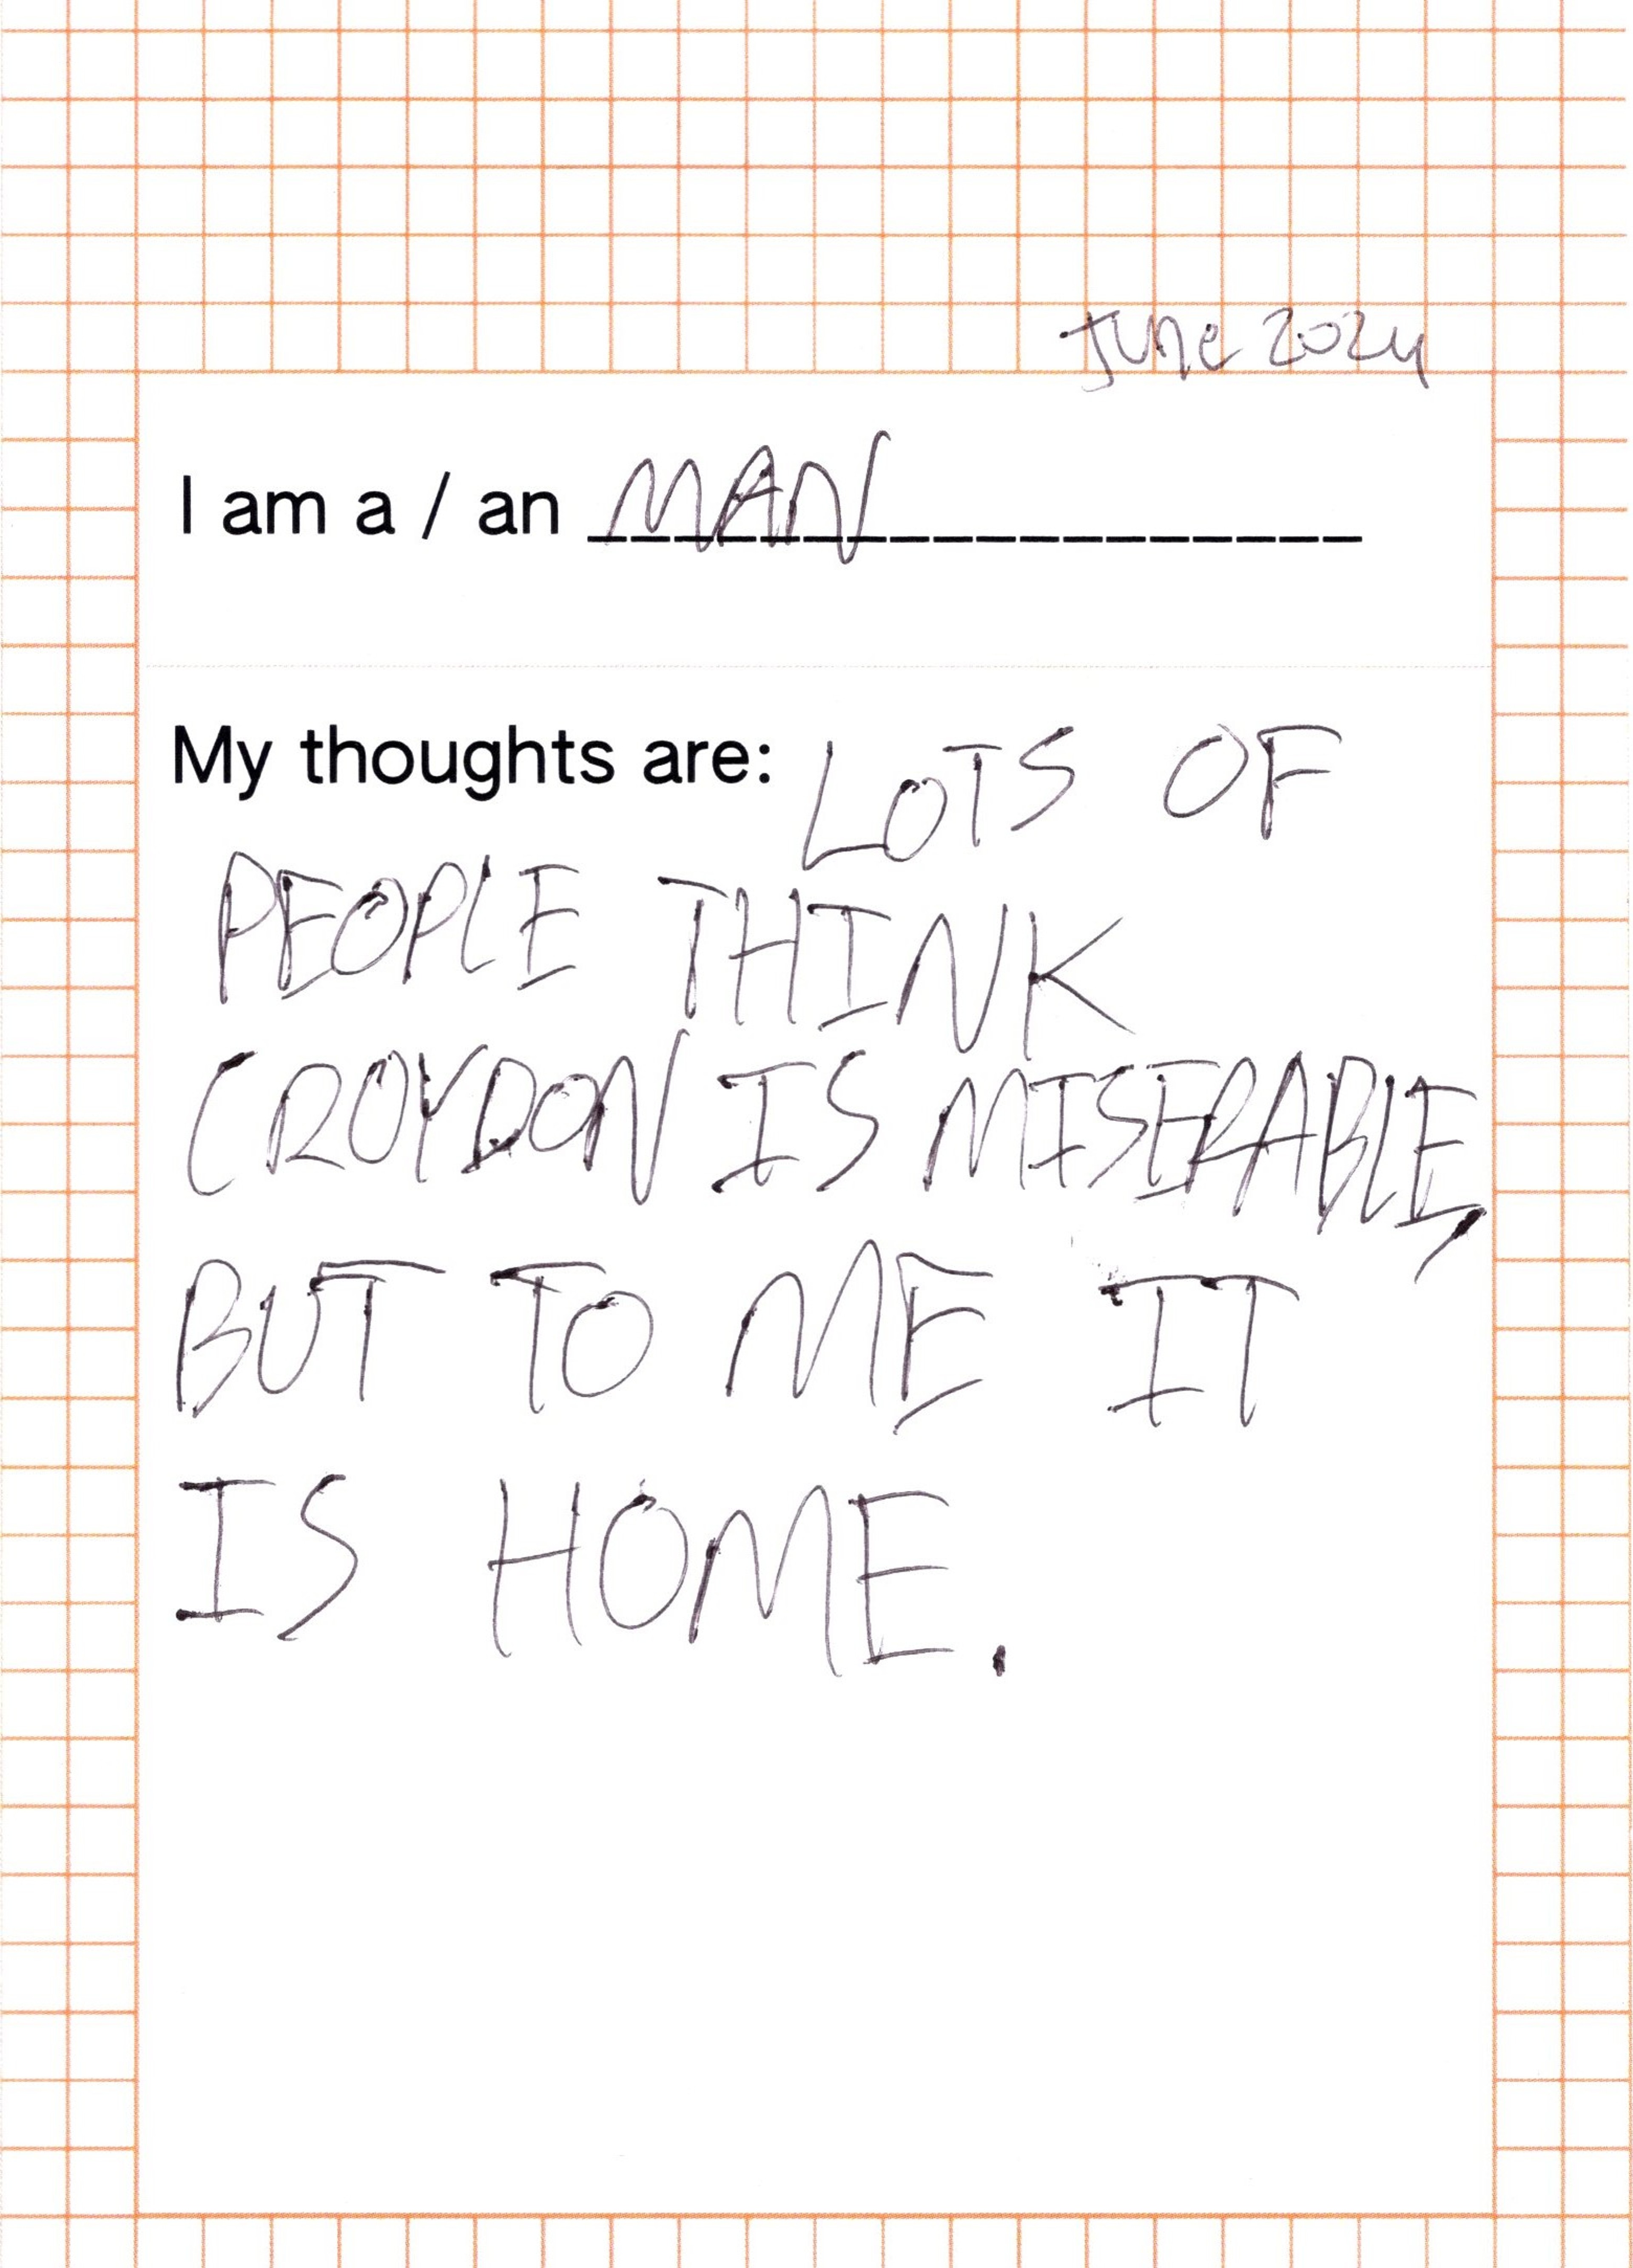 June 2024
I am a / an MAN
My thoughts are: LOTS OF
PEOPLE THINK
CROYDON IS MISERABLE,
BUT TO ME IT
IS HOME.